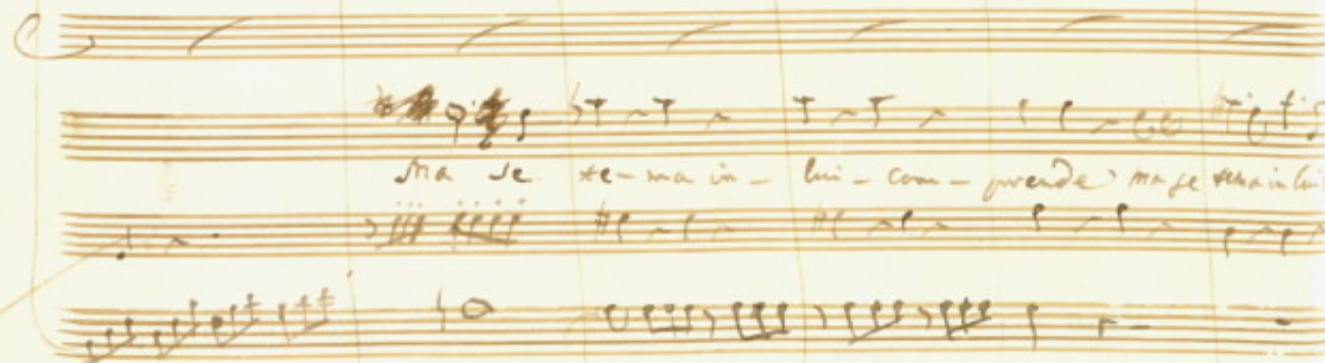 Ma se te-ma in-lui-com-prende ma se tema in lui